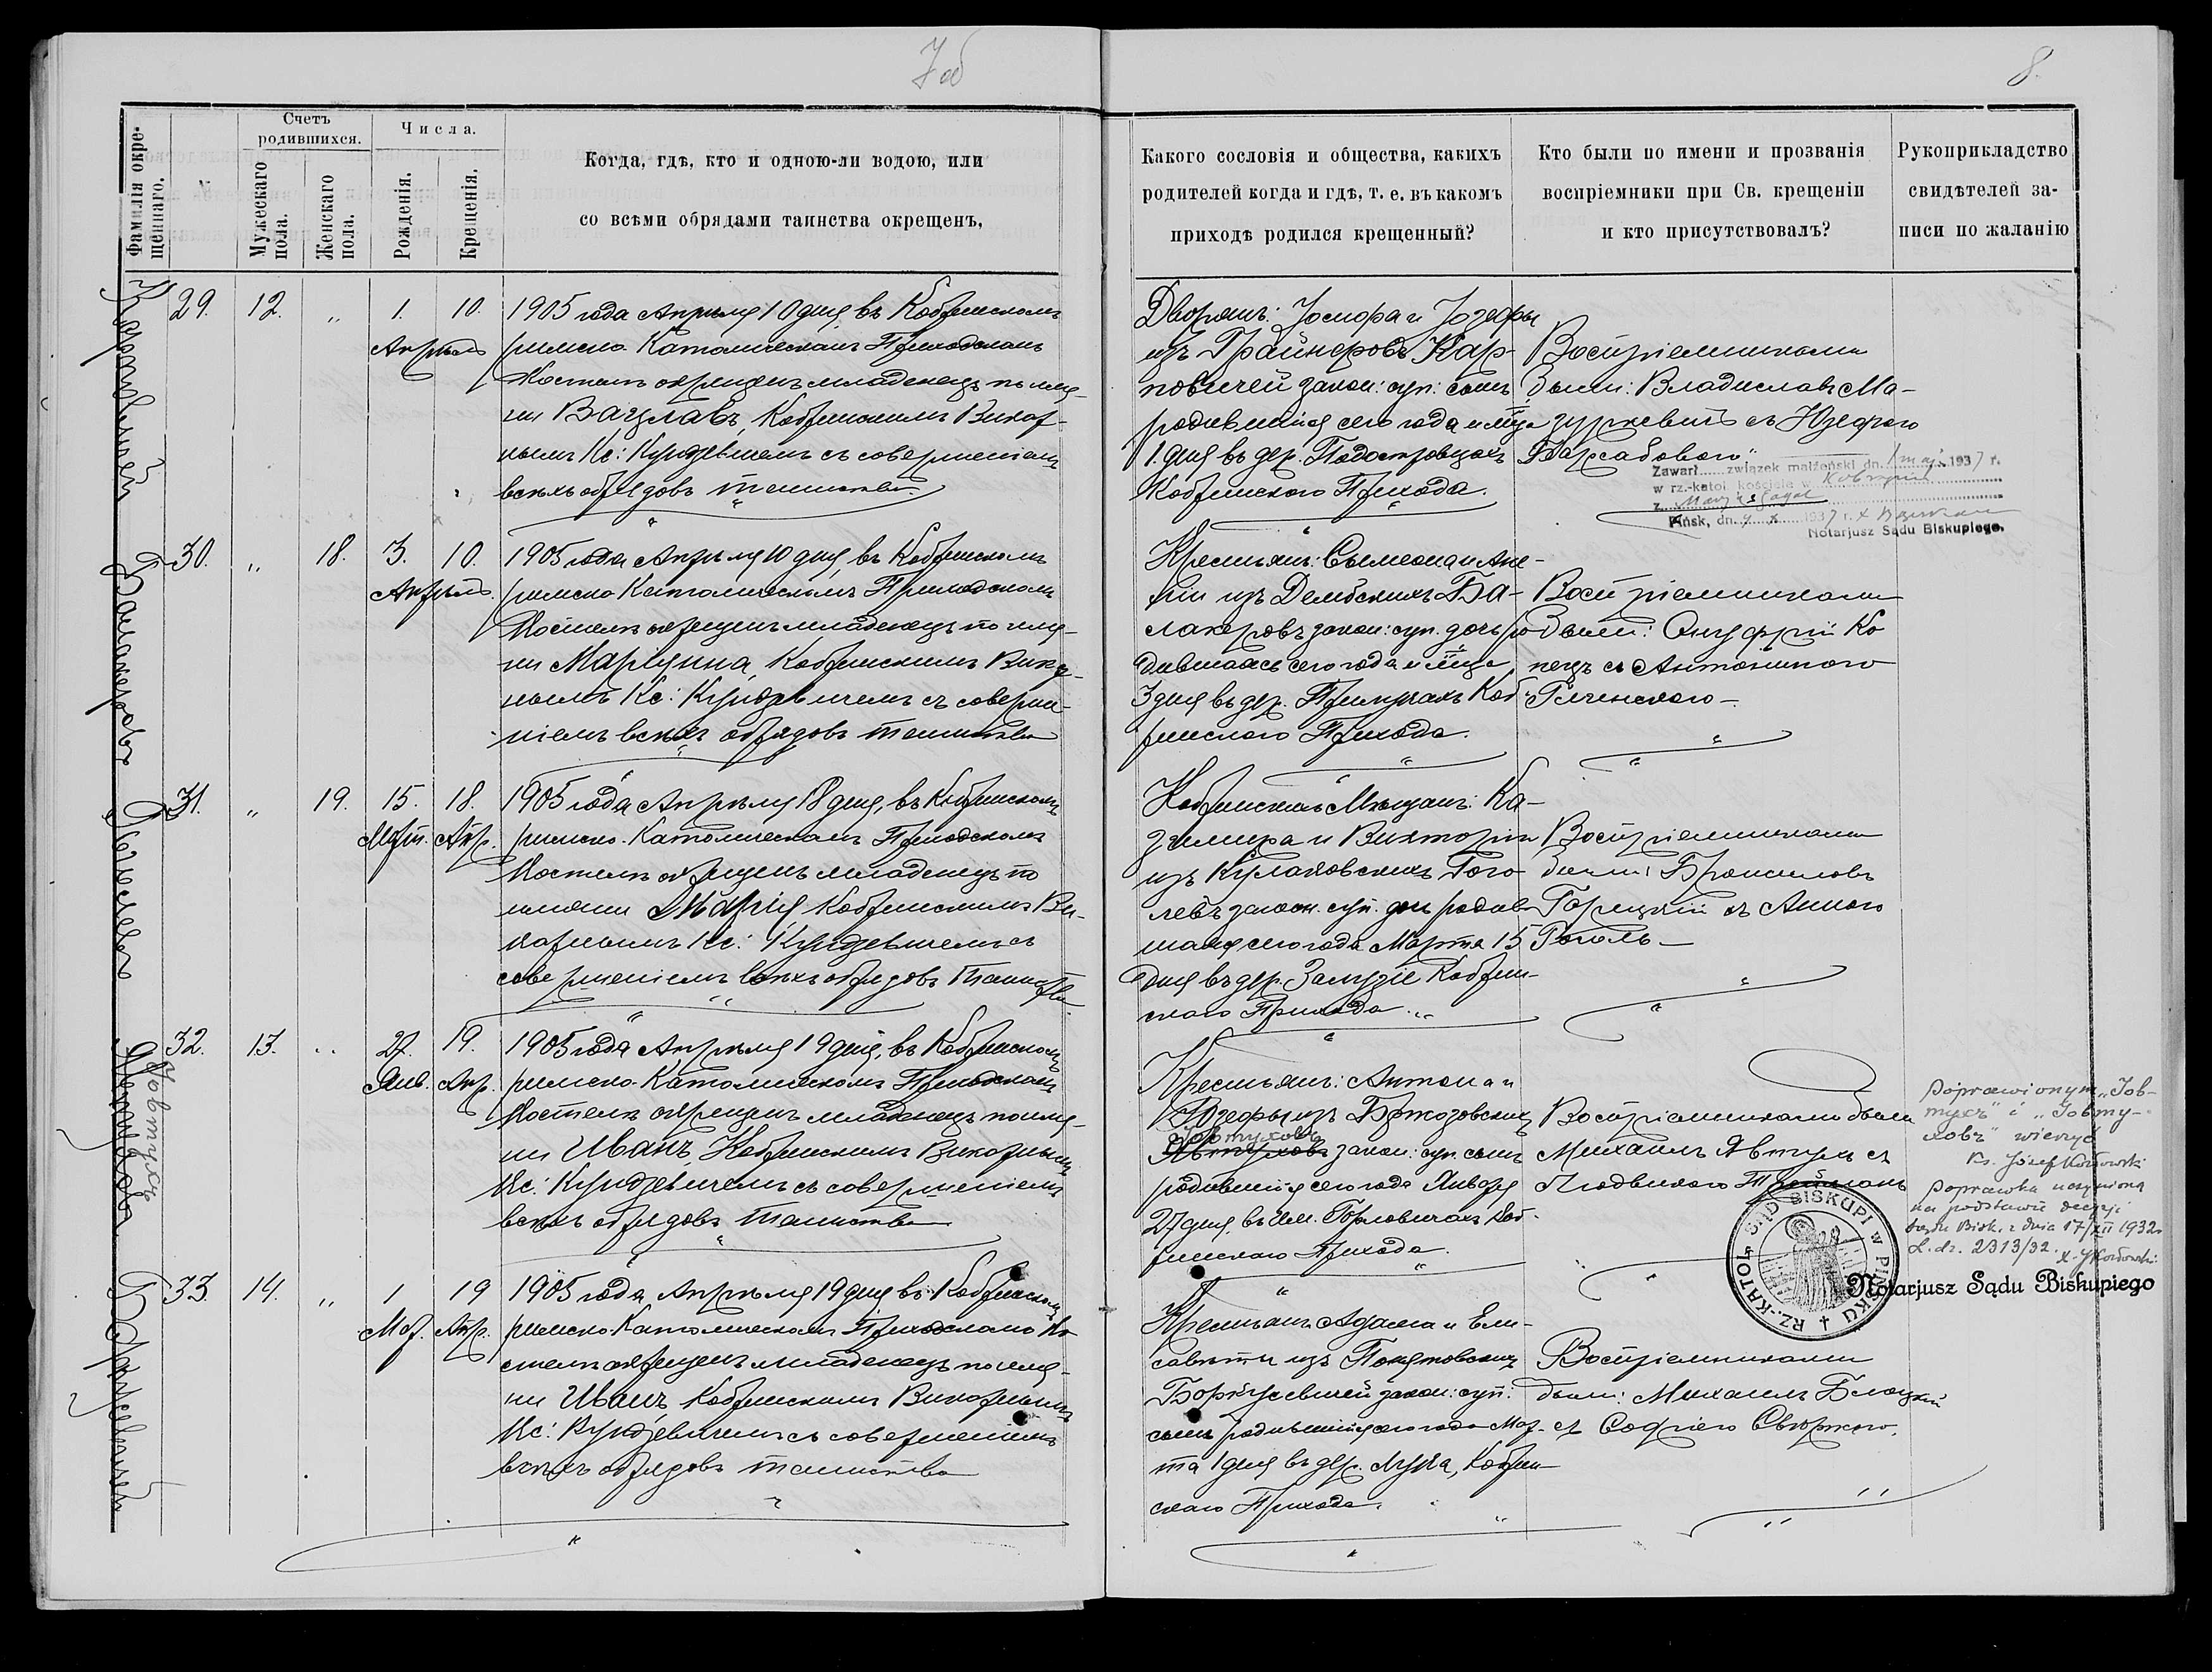 7об
8.
Фамилія окре-
щеннаго.
№
Счетъ
родившихся.
Мужескаго
пола.
Женскаго
пола.
Числа.
Рожденія.
Крещенія.
Когда, гдѣ, кто и одною-ли водою, или
со всѣми обрядами таинства окрещенъ,
Какого сословія и общества, какихъ
родителей когда и гдѣ, т. е. въ какомъ
приходѣ родился крещенный?
Кто были по имени и прозванія
воспріемники при Св. крещеніи
и кто присутствовалъ?
Рукоприкладство
свидѣтелей за-
писи по жаланію
Карповичей
29. 12. „ 1. 10.
Апрѣль
1905 года Апрѣля 10 дня, въ Кобринскомъ
римско-Католическомъ Приходскомъ
Костелѣ окрещенъ младенецъ по име-
ни Вацлавъ, Кобринскимъ Викар-
нымъ Кс: Кундзевичемъ съ совершеніемъ
всѣхъ обрядовъ таинства.
Дворянъ: Іосифа и Іозефы
изъ Грайнеровъ Кар-
повичей закон: суп: сынъ
родившійся сего года и м-ца
1. дня въ дер. Подостровцахъ
Кобринского Прихода.
Воспріемниками
были: Владиславъ Ма-
зуркевичъ съ Юзефою
Zawarł związek małżeński dn. 1 maja 1937 r.
w rz.-katol. kościele w Kobryniu
z
Pińsk, dn. 4 X 1937 r. x
Notarjusz Sądu Biskupiego.
30. „ 18. 3. 10.
Апрѣль.
1905 года Апрѣля 10 дня, въ Кобринскомъ
римско Католическомъ Приходскомъ
Костелѣ окрещенъ младенецъ по име-
ни Марцина, Кобринскимъ Викар-
нымъ Кс: Кундзевичемъ съ соверше-
ніемъ всѣхъ обрядовъ таинства
Крестьянъ: Сымеона и Ане-
ліи изъ Дембскихъ Ба-
лакеровъ закон: суп. дочь ро
дившаяся сего года и м-ца
3 дня въ дер. Коб-
ринского Прихода.
Воспріемниками
были: Онуфрій Ко
пецъ съ Антониною
31. „ 19. 15. 18.
Март. Апр.
1905 года Апрѣля 18 дня, въ Кобринскомъ
римско-Католическомъ Приходскомъ
Костелѣ окрещенъ младенецъ по
имени Марія Кобринскимъ Ви-
карнымъ Кс: Кундзевичемъ съ
совершеніемъ всѣхъ обрядовъ Таинства
Кобринскихъ Мѣщанъ: Ка-
зимира и Викторіи
изъ Кулаковскихъ Гого
левъ закон. суп. дочь родив
шаяся сего года Марта 15
дня въ дер. Залузіе Кобрин-
скаго Прихода.
Воспріемниками
были: Брониславъ
Горецкій съ Анною
Гоголь
Іовтухъ
32. 13. „ 27. 19.
Янв. Апр.
1905 года Апрѣля 19 дня, въ Кобринскомъ
римско-Католическомъ Приходскомъ
Костелѣ окрещенъ младенецъ по име-
ни Иванъ, Кобринскимъ Викарнымъ
Кс: Кундзевичемъ съ совершеніемъ
всѣхъ обрядовъ таинства
Крестьянъ: Антона и
Юзефы изъ Бржозовскихъ
Іовтуховъ
Явтуховъ закон: суп. сынъ
родившійся сего года Января
27 дня, въ им. Коб-
ринскаго Прихода.
Воспріемниками были
Михаилъ Явтухъ съ
Людвикою
poprawionym „Іов-
тухъ" i „Іовту-
ховъ" wierzyć
Ks. Józef
poprawka uczyniona
na podstawie decyzji
Sądu Bisk. z dnia 17/XII 1932 r.
L. dz. 2313/32.
RZ.-KATOL. SĄD BISKUPI W PIŃSKU
Notarjusz Sądu Biskupiego
33. 14. „ 1 19
Мар. Апр.
1905 года, Апрѣля 19 дня, въ Кобринскомъ
римско Католическомъ Приходскомъ Ко
стелѣ окрещенъ младенецъ по име-
ни Иванъ, Кобринскимъ Викарнымъ
Кс: Кундзевичемъ съ совершеніемъ
всѣхъ обрядовъ таинства
Крестьянъ Адама и Ели-
саветы изъ Понятовскихъ
закон: суп:
сынъ родившійся сего года Мар-
та 1 дня въ дер. Лука, Кобрин-
скаго Прихода.
Воспріемниками
были: Михаилъ
съ Софіею